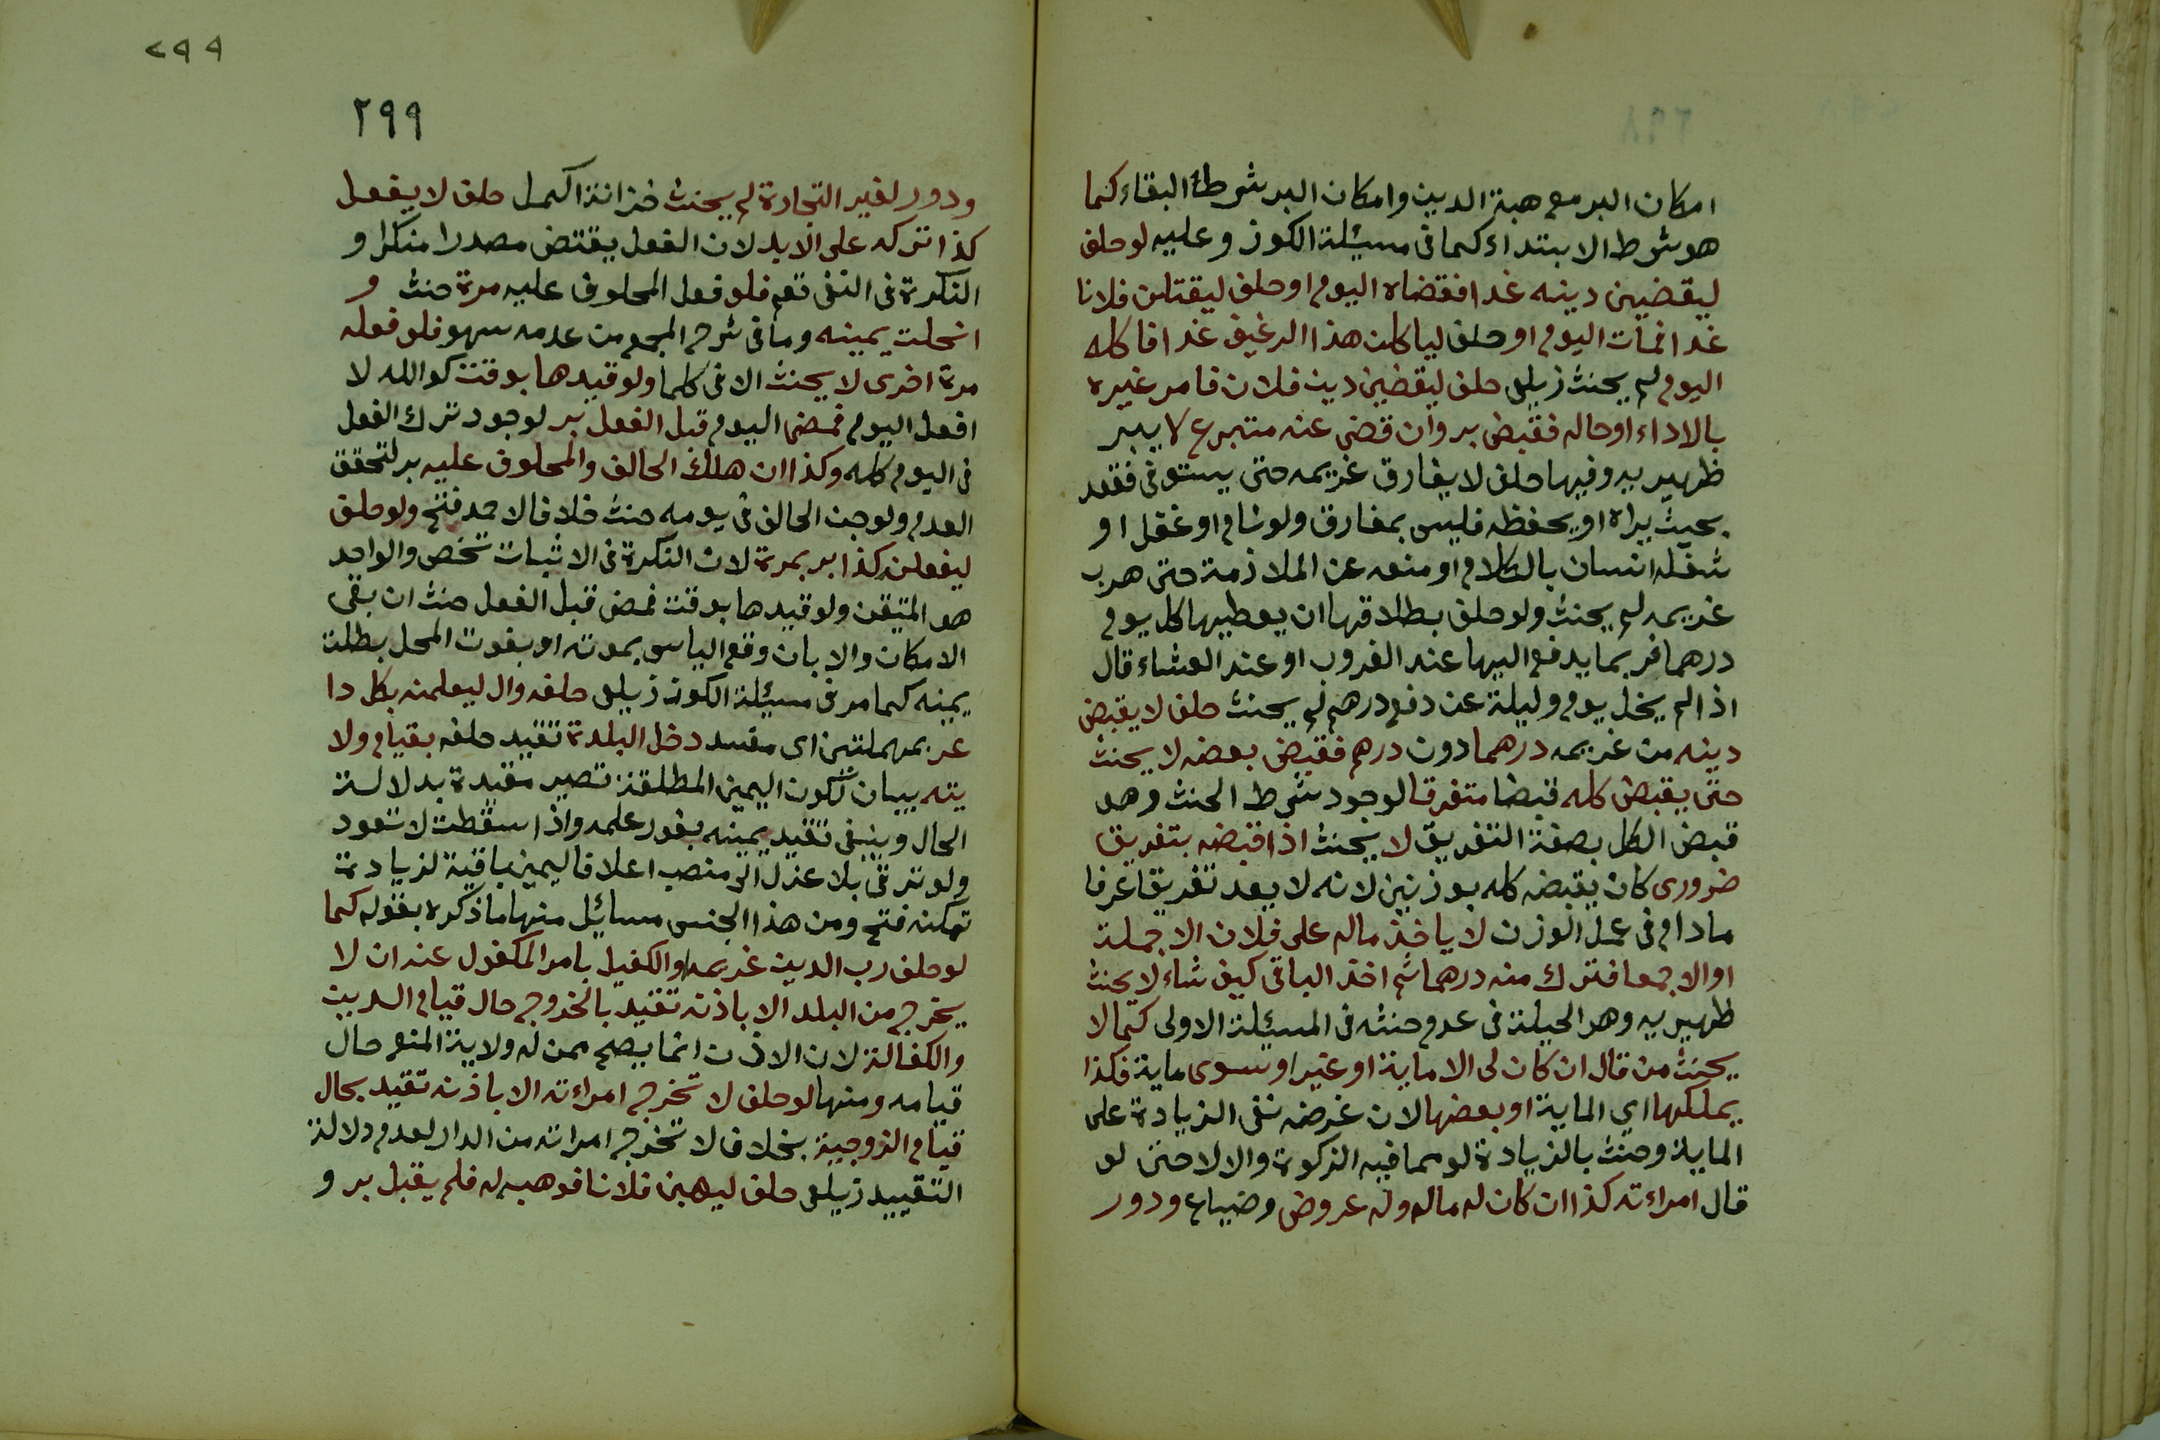 امكان البر مع هبة الدين وامكان البر شرط البقاء كما
هو شرط الابتداء كما فى مسئلة الكوز وعليه لو حلف
ليقضين دينه غدا فقضاه اليوم او حلف ليقتلن فلانا
غدا فمات اليوم او حلف لياكلن هذا الرغيف غدا فاكله
اليوم لم يحنث زيلعى حلف ليقضين دين فلان فامر غيره
بالاداء او حاله فقبض بر وان قضى عنه متبرع لا يبر
ظهيريه وفيها حلف لا يفارق غريمه حتى يستوفى فقعد
بحيث يراه او يحفظه فليس بمفارق ولو نام او غفل او
شغله انسان بالكلام او منعه عن الملازمة حتى هرب
غريمه لم يحنث ولو حلف بطلاقها ان يعطيها كل يوم
درهما فربما يدفع اليها عند الغروب او عند العشاء قال
اذا لم يخل يوم وليلة عن دفع درهم لم يحنث حلف لا يقبض
دينه من غريمه درهما دون درهم فقبض بعضه لا يحنث
حتى يقبض كله قبضا متفرقا لوجود شرط الحنث وهو
قبض الكل بصفة التفريق لا يحنث اذا قبضه بتفريق
ضرورى كان يقبضه كله بوزنين لانه لا يعد تفريقا عرفا
مادام فى عمل الوزن لا ياخذ ماله على فلان الا جملة
او الا جمعا فترك منه درهما ثم اخذ الباقى كيف شاء لا يحنث
ظهيريه وهو الحيلة فى عدم حنثه فى المسئلة الاولى كما لا
يحنث من قال ان كان لى الا ماية او غير او سوى ماية فكذا
يملكها اي الماية او بعضها لان غرضه نفى الزيادة على
الماية وحنث بالزيادة لو مما فيه الزكوة والا لا حتى لو
قال امراءته كذا ان كان له مال وله عروض وضياع ودور
٢٩٩
٢٩٩
ودور لغير التجارة لم يحنث خزانة اكمل حلف لا يفعل
كذا تركه على الابد لان الفعل يقتضى مصدرا منكرا و
النكرة فى النفى تعم فلو فعل المحلوف عليه مرة حنث و
انحلت يمينه وما فى شرح المجمع من عدمه سهو فلو فعله
مرة اخرى لا يحنث الا فى كلما ولو قيدها بوقت كوالله لا
افعل اليوم فمضى اليوم قبل الفعل بر لوجود ترك الفعل
فى اليوم كله وكذا ان هلك الحالف والمحلوف عليه بر لتحقق
العدم ولو جن الحالف فى يومه حنث خلافا لاحمد فتح ولو حلف
ليفعلن كذا بر بمرة لان النكرة فى الاثبات تخص والواحد
هو المتيقن ولو قيدها بوقت فمضى قبل الفعل حنث ان بقى
الامكان والا بان وقع الياس بموته او بفوت المحل بطلت
يمينه كما مر فى مسئلة الكوز زيلعى حلفه وال ليعلمنه بكل دا
عر بمهملتين اى مفسد دخل البلدة تقيد حلفه بقيام ولا
يته بيان لكون اليمين المطلقة تصير مقيدة بدلالة
الحال وينبغى تقيد يمينه بفور علمه واذا سقطت لا تعود
ولو ترقى بلا عزل الى منصب اعلا فاليمين باقية لزيادة
تمكنه فتح ومن هذا الجنس مسائل منها ما ذكره بقوله كما
لو حلف رب الدين غريمه او الكفيل بامر المكفول عنه ان لا
يخرج من البلد الا باذنه تقيد بالخروج حال قيام الدين
والكفالة لان الاذن انما يصح ممن له ولاية المنع حال
قيامه ومنها لو حلف لا تخرج امراءته الا باذنه تقيد بحال
قيام الزوجية بخلاف لا تخرج امراته من الدار لعدم دلالة
التقييد زيلعى حلف ليهبن فلانا فوهبه له فلم يقبل بر و